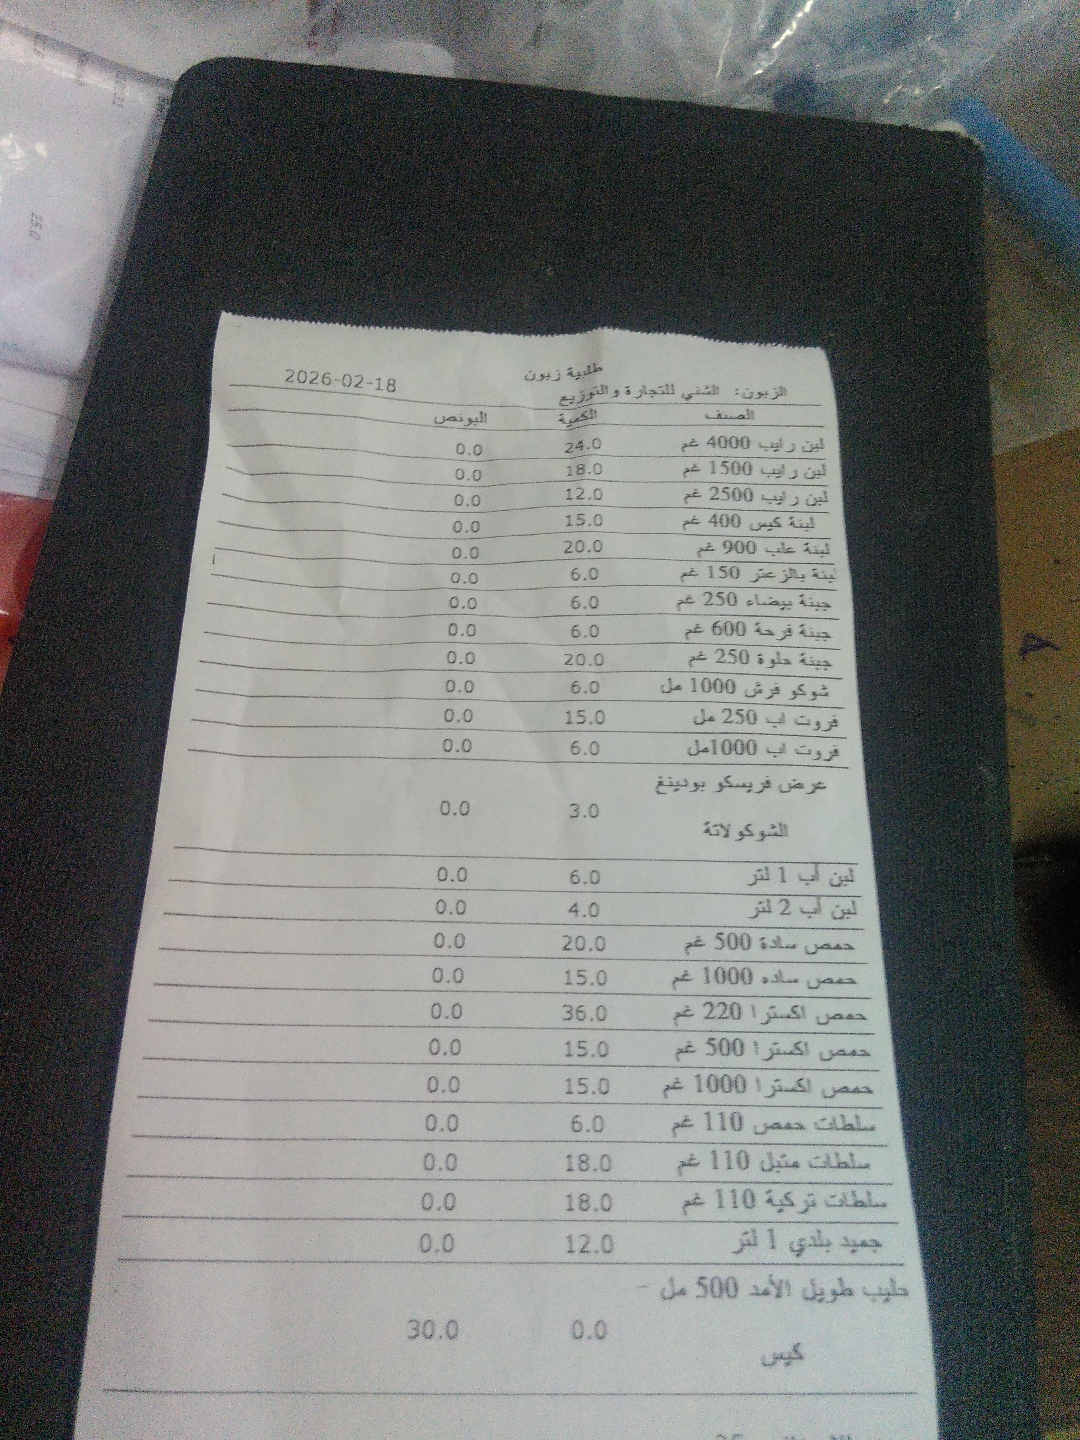 طلبية زبون
الزبون: الشني للتجارة والتوزيع 2026-02-18
الصنف الكمية البونص
لبن رايب 4000 غم 24.0 0.0
لبن رايب 1500 غم 18.0 0.0
لبن رايب 2500 غم 12.0 0.0
لبنة كيس 400 غم 15.0 0.0
لبنة علب 900 غم 20.0 0.0
لبنة بالزعتر 150 غم 6.0 0.0
جبنة بيضاء 250 غم 6.0 0.0
جبنة فرحة 600 غم 6.0 0.0
جبنة حلوة 250 غم 20.0 0.0
شوكو فرش 1000 مل 6.0 0.0
فروت اب 250 مل 15.0 0.0
فروت اب 1000مل 6.0 0.0
عرض فريسكو بودينغ
3.0 0.0
الشوكولاتة
لبن أب 1 لتر 6.0 0.0
لبن أب 2 لتر 4.0 0.0
حمص سادة 500 غم 20.0 0.0
حمص ساده 1000 غم 15.0 0.0
حمص اكسترا 220 غم 36.0 0.0
حمص اكسترا 500 غم 15.0 0.0
حمص اكسترا 1000 غم 15.0 0.0
سلطات حمص 110 غم 6.0 0.0
سلطات متبل 110 غم 18.0 0.0
سلطات تركية 110 غم 18.0 0.0
جميد بلدي 1 لتر 12.0 0.0
حليب طويل الأمد 500 مل -
0.0 30.0
كيس